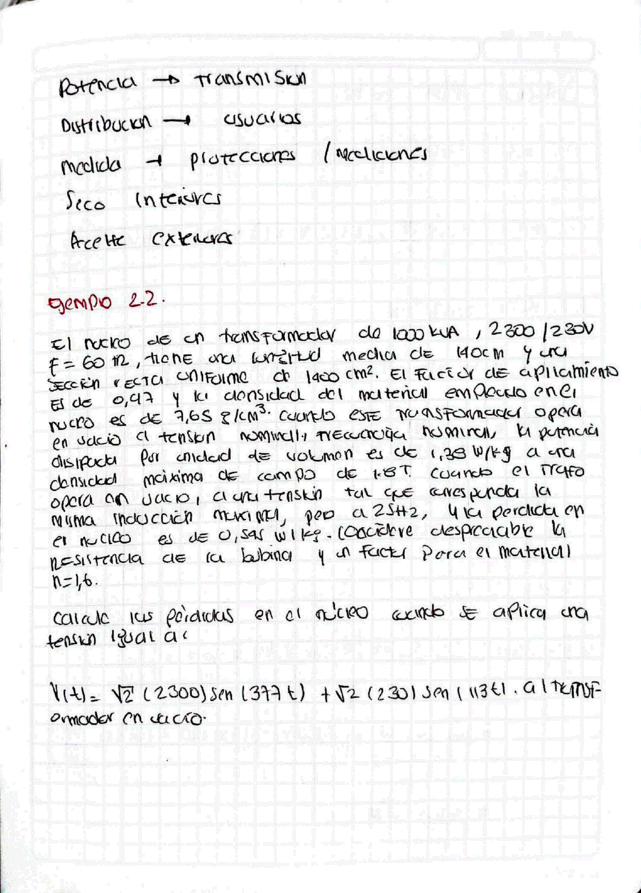 Potencia → transmision
Distribucion → usuarios
medida → protecciones / mediciones
Seco Interiores
Aceite exteriores
Ejemplo 2.2.
El nucleo de un transformador de 1000 kVA, 2300 / 230V
F = 60 Hz, tiene una longitud media de 140cm y una
sección recta uniforme de 1400 cm². El factor de apilamiento
Es de 0,97 y la densidad del material empleado en el
nucleo es de 7,65 g/cm³. cuando este transformador opera
en vacio a tension nominal y frecuencia nominal, la potencia
disipada por unidad de volumen es de 1,39 W/kg a una
densidad máxima de campo de T. cuando el trafo
opera en vacio, a una tensión tal que corresponda la
misma inducción maxima, pero a 25Hz, y la perdida en
el nucleo es de 0,545 W/kg. Considere despreciable la
resistencia de la bobina y un factor para el material
n=1,6.
Calcule las pérdidas en el núcleo cuando se aplica una
tensión igual a:
V(t) = √2 (2300) Sen (377 t) + √2 (230) Sen (113t). al transf-
ormador en vacio.